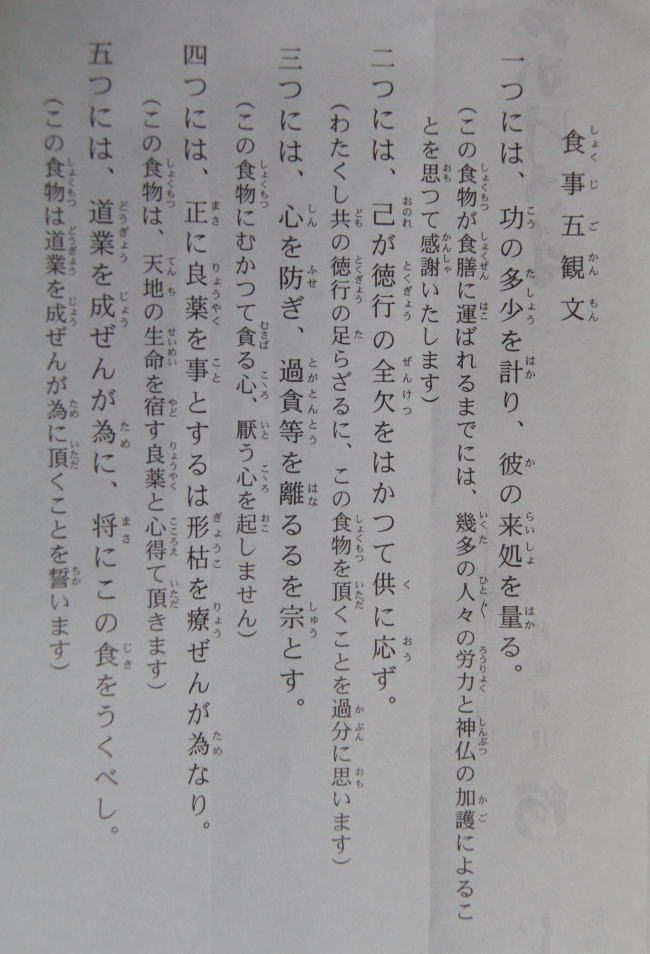 食事五観文
一つには、功の多少を計り、彼の来処を量る。
(この食物が食膳に運ばれるまでには、幾多の人々の労力と神仏の加護によるこ
とを思つて感謝いたします)
二つには、己が徳行の全欠をはかつて供に応ず。
(わたくし共の徳行の足らざるに、この食物を頂くことを過分に思います)
三つには、心を防ぎ、過貪等を離るるを宗とす。
(この食物にむかつて貪る心、厭う心を起しません)
四つには、正に良薬を事とするは形枯を療ぜんが為なり。
(この食物は、天地の生命を宿す良薬と心得て頂きます)
五つには、道業を成ぜんが為に、将にこの食をうくべし。
(この食物は道業を成ぜんが為に頂くことを誓います)